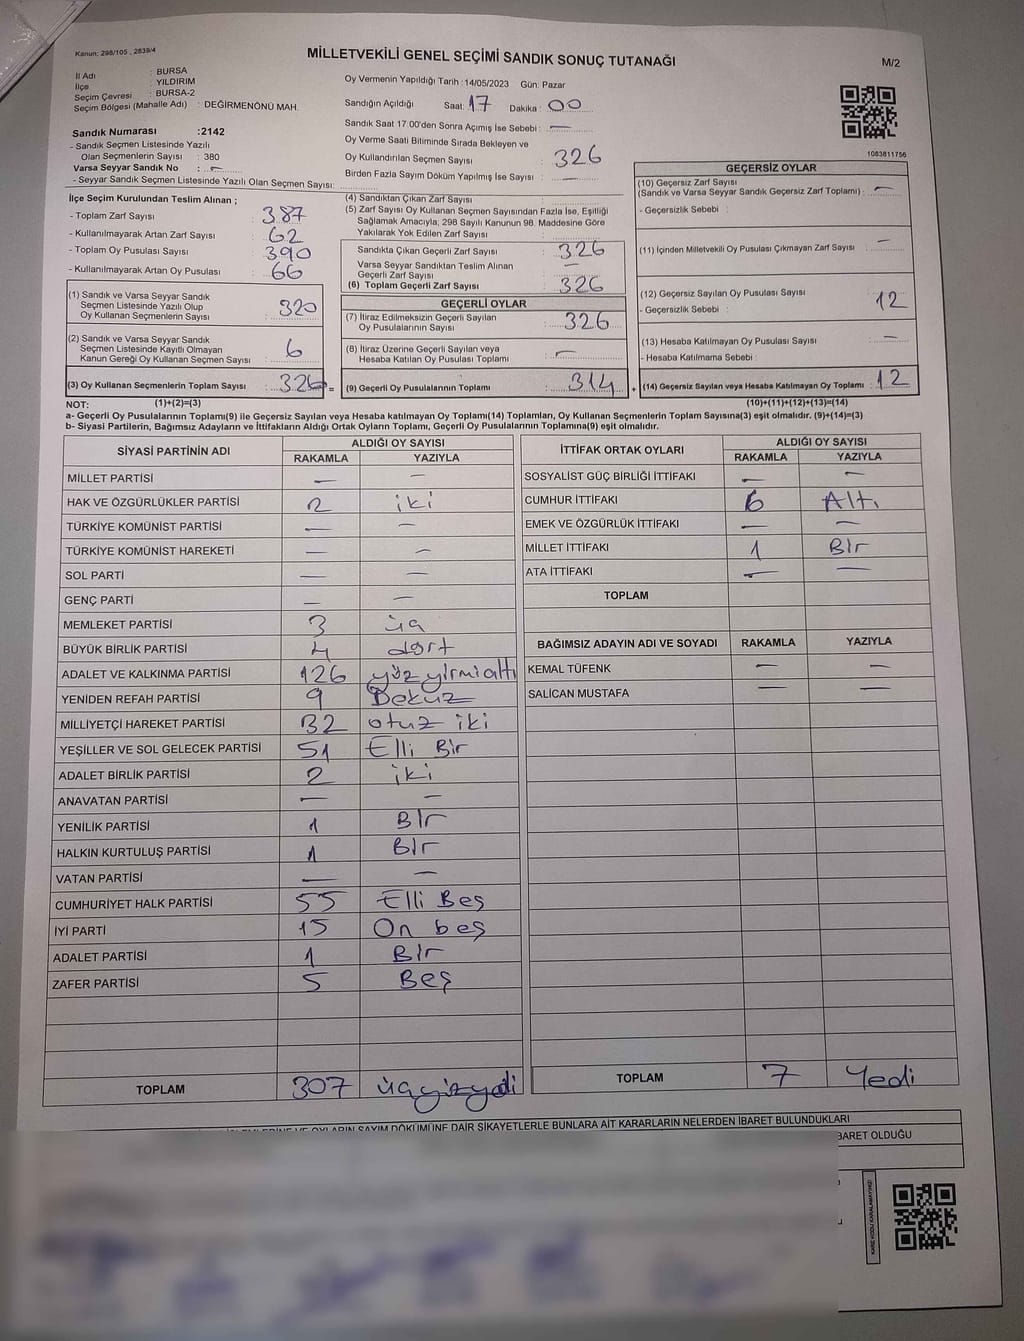 Kanun: 298/105 , 2839/4
MİLLETVEKİLİ GENEL SEÇİMİ SANDIK SONUÇ TUTANAĞI
M/2
İl Adı : BURSA
İlçe : YILDIRIM
Seçim Çevresi : BURSA-2
Seçim Bölgesi (Mahalle Adı) : DEĞİRMENÖNÜ MAH.
Sandık Numarası :2142
- Sandık Seçmen Listesinde Yazılı
Olan Seçmenlerin Sayısı : 380
Varsa Seyyar Sandık No : —
- Seyyar Sandık Seçmen Listesinde Yazılı Olan Seçmen Sayısı:
Oy Vermenin Yapıldığı Tarih :14/05/2023 Gün: Pazar
Sandığın Açıldığı Saat: 17 Dakika : 00
Sandık Saat 17:00'den Sonra Açımış İse Sebebi : —
Oy Verme Saati Bitiminde Sırada Bekleyen ve
Oy Kullandırılan Seçmen Sayısı : 326
Birden Fazla Sayım Döküm Yapılmış İse Sayısı : —
1083811756
İlçe Seçim Kurulundan Teslim Alınan ;
- Toplam Zarf Sayısı : 387
- Kullanılmayarak Artan Zarf Sayısı : 62
- Toplam Oy Pusulası Sayısı : 390
- Kullanılmayarak Artan Oy Pusulası : 66
(1) Sandık ve Varsa Seyyar Sandık
Seçmen Listesinde Yazılı Olup
Oy Kullanan Seçmenlerin Sayısı : 320
(2) Sandık ve Varsa Seyyar Sandık
Seçmen Listesinde Kayıtlı Olmayan
Kanun Gereği Oy Kullanan Seçmen Sayısı : 6
(3) Oy Kullanan Seçmenlerin Toplam Sayısı : 326 =
(4) Sandıktan Çıkan Zarf Sayısı :
(5) Zarf Sayısı Oy Kullanan Seçmen Sayısından Fazla İse, Eşitliği
Sağlamak Amacıyla; 298 Sayılı Kanunun 98. Maddesine Göre
Yakılarak Yok Edilen Zarf Sayısı
Sandıkta Çıkan Geçerli Zarf Sayısı : 326
Varsa Seyyar Sandıktan Teslim Alınan
Geçerli Zarf Sayısı : —
(6) Toplam Geçerli Zarf Sayısı : 326
GEÇERLİ OYLAR
(7) İtiraz Edilmeksizin Geçerli Sayılan
Oy Pusulalarının Sayısı : 326
(8) İtiraz Üzerine Geçerli Sayılan veya
Hesaba Katılan Oy Pusulası Toplamı : —
(9) Geçerli Oy Pusulalarının Toplamı : 314 +
GEÇERSİZ OYLAR
(10) Geçersiz Zarf Sayısı
(Sandık ve Varsa Seyyar Sandık Geçersiz Zarf Toplamı) : —
- Geçersizlik Sebebi :
(11) İçinden Milletvekili Oy Pusulası Çıkmayan Zarf Sayısı : —
(12) Geçersiz Sayılan Oy Pusulası Sayısı : 12
- Geçersizlik Sebebi :
(13) Hesaba Katılmayan Oy Pusulası Sayısı : —
- Hesaba Katılmama Sebebi :
(14) Geçersiz Sayılan veya Hesaba Katılmayan Oy Toplamı : 12
NOT: (1)+(2)=(3)
(10)+(11)+(12)+(13)=(14)
a- Geçerli Oy Pusulalarının Toplamı(9) ile Geçersiz Sayılan veya Hesaba katılmayan Oy Toplamı(14) Toplamları, Oy Kullanan Seçmenlerin Toplam Sayısına(3) eşit olmalıdır. (9)+(14)=(3)
b- Siyasi Partilerin, Bağımsız Adayların ve İttifakların Aldığı Ortak Oyların Toplamı, Geçerli Oy Pusulalarının Toplamına(9) eşit olmalıdır.
SİYASİ PARTİNİN ADI ALDIĞI OY SAYISI
RAKAMLA YAZIYLA
MİLLET PARTİSİ — —
HAK VE ÖZGÜRLÜKLER PARTİSİ 2 iki
TÜRKİYE KOMÜNİST PARTİSİ — —
TÜRKİYE KOMÜNİST HAREKETİ — —
SOL PARTİ — —
GENÇ PARTİ — —
MEMLEKET PARTİSİ 3 üç
BÜYÜK BİRLİK PARTİSİ 4 dört
ADALET VE KALKINMA PARTİSİ 126 yüz yirmi altı
YENİDEN REFAH PARTİSİ 9 Dokuz
MİLLİYETÇİ HAREKET PARTİSİ 32 otuz iki
YEŞİLLER VE SOL GELECEK PARTİSİ 51 Elli Bir
ADALET BİRLİK PARTİSİ 2 iki
ANAVATAN PARTİSİ — —
YENİLİK PARTİSİ 1 Bir
HALKIN KURTULUŞ PARTİSİ 1 Bir
VATAN PARTİSİ — —
CUMHURİYET HALK PARTİSİ 55 Elli Beş
İYİ PARTİ 15 On beş
ADALET PARTİSİ 1 Bir
ZAFER PARTİSİ 5 Beş
TOPLAM 307 üçyüzyedi
İTTİFAK ORTAK OYLARI ALDIĞI OY SAYISI
RAKAMLA YAZIYLA
SOSYALİST GÜÇ BİRLİĞİ İTTİFAKI — —
CUMHUR İTTİFAKI 6 Altı
EMEK VE ÖZGÜRLÜK İTTİFAKI — —
MİLLET İTTİFAKI 1 Bir
ATA İTTİFAKI — —
TOPLAM
BAĞIMSIZ ADAYIN ADI VE SOYADI RAKAMLA YAZIYLA
KEMAL TÜFENK — —
SALİCAN MUSTAFA — —
TOPLAM 7 Yedi
OYLARIN SAYIM DÖKÜMÜNE DAİR ŞİKAYETLERLE BUNLARA AİT KARARLARIN NELERDEN İBARET BULUNDUKLARI
BARET OLDUĞU